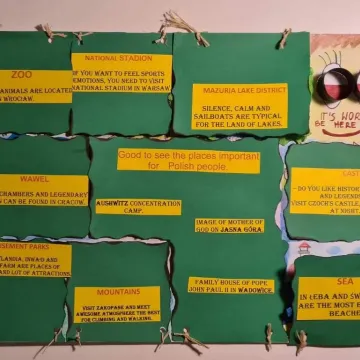 ZOO
ANIMALS ARE LOCATE
N WROCŁAW.
NATIONAL STADION
IF YOU WANT TO FEEL SPORTS
EMOTIONS, YOU NEED TO VISIT
NATIONAL STADIUM IN WARSAW
MAZURIA LAKE DISTRICT
SILENCE, CALM AND
SAILBOATS ARE TYPICAL
FOR THE LAND OF LAKES.
IT'S WOR
BE HERE
WAWEL
CHAMBERS AND LEGENDARY
N CAN BE FOUND IN CRACOW.
Good to see the places important
for Polish people
AUSHWITZ CONCENTRATION
CAMP.
IMAGE OF MOTHER OF
GOD ON JASNA GÓRA.
CAST
- DO YOU LIKE HISTOR
AND LEGENDS
VISIT CZOCH'S CASTLE,
AT NIGHT
USEMENT PARKS
FARM ARE PLACES OF
AND LOT OF ATTRACTIONS.
MOUNTAINS
VISIT ZAKOPANE AND MEET
AWESOME ATMOSPHERE THE BEST
FOR CLIMBING AND WALKING.
FAMILY HOUSE OF POPE
JOHN PAUL II IN WADOWICE
SEA
IN ŁEBA AND SW
ARE THE MOST B
BEACHE